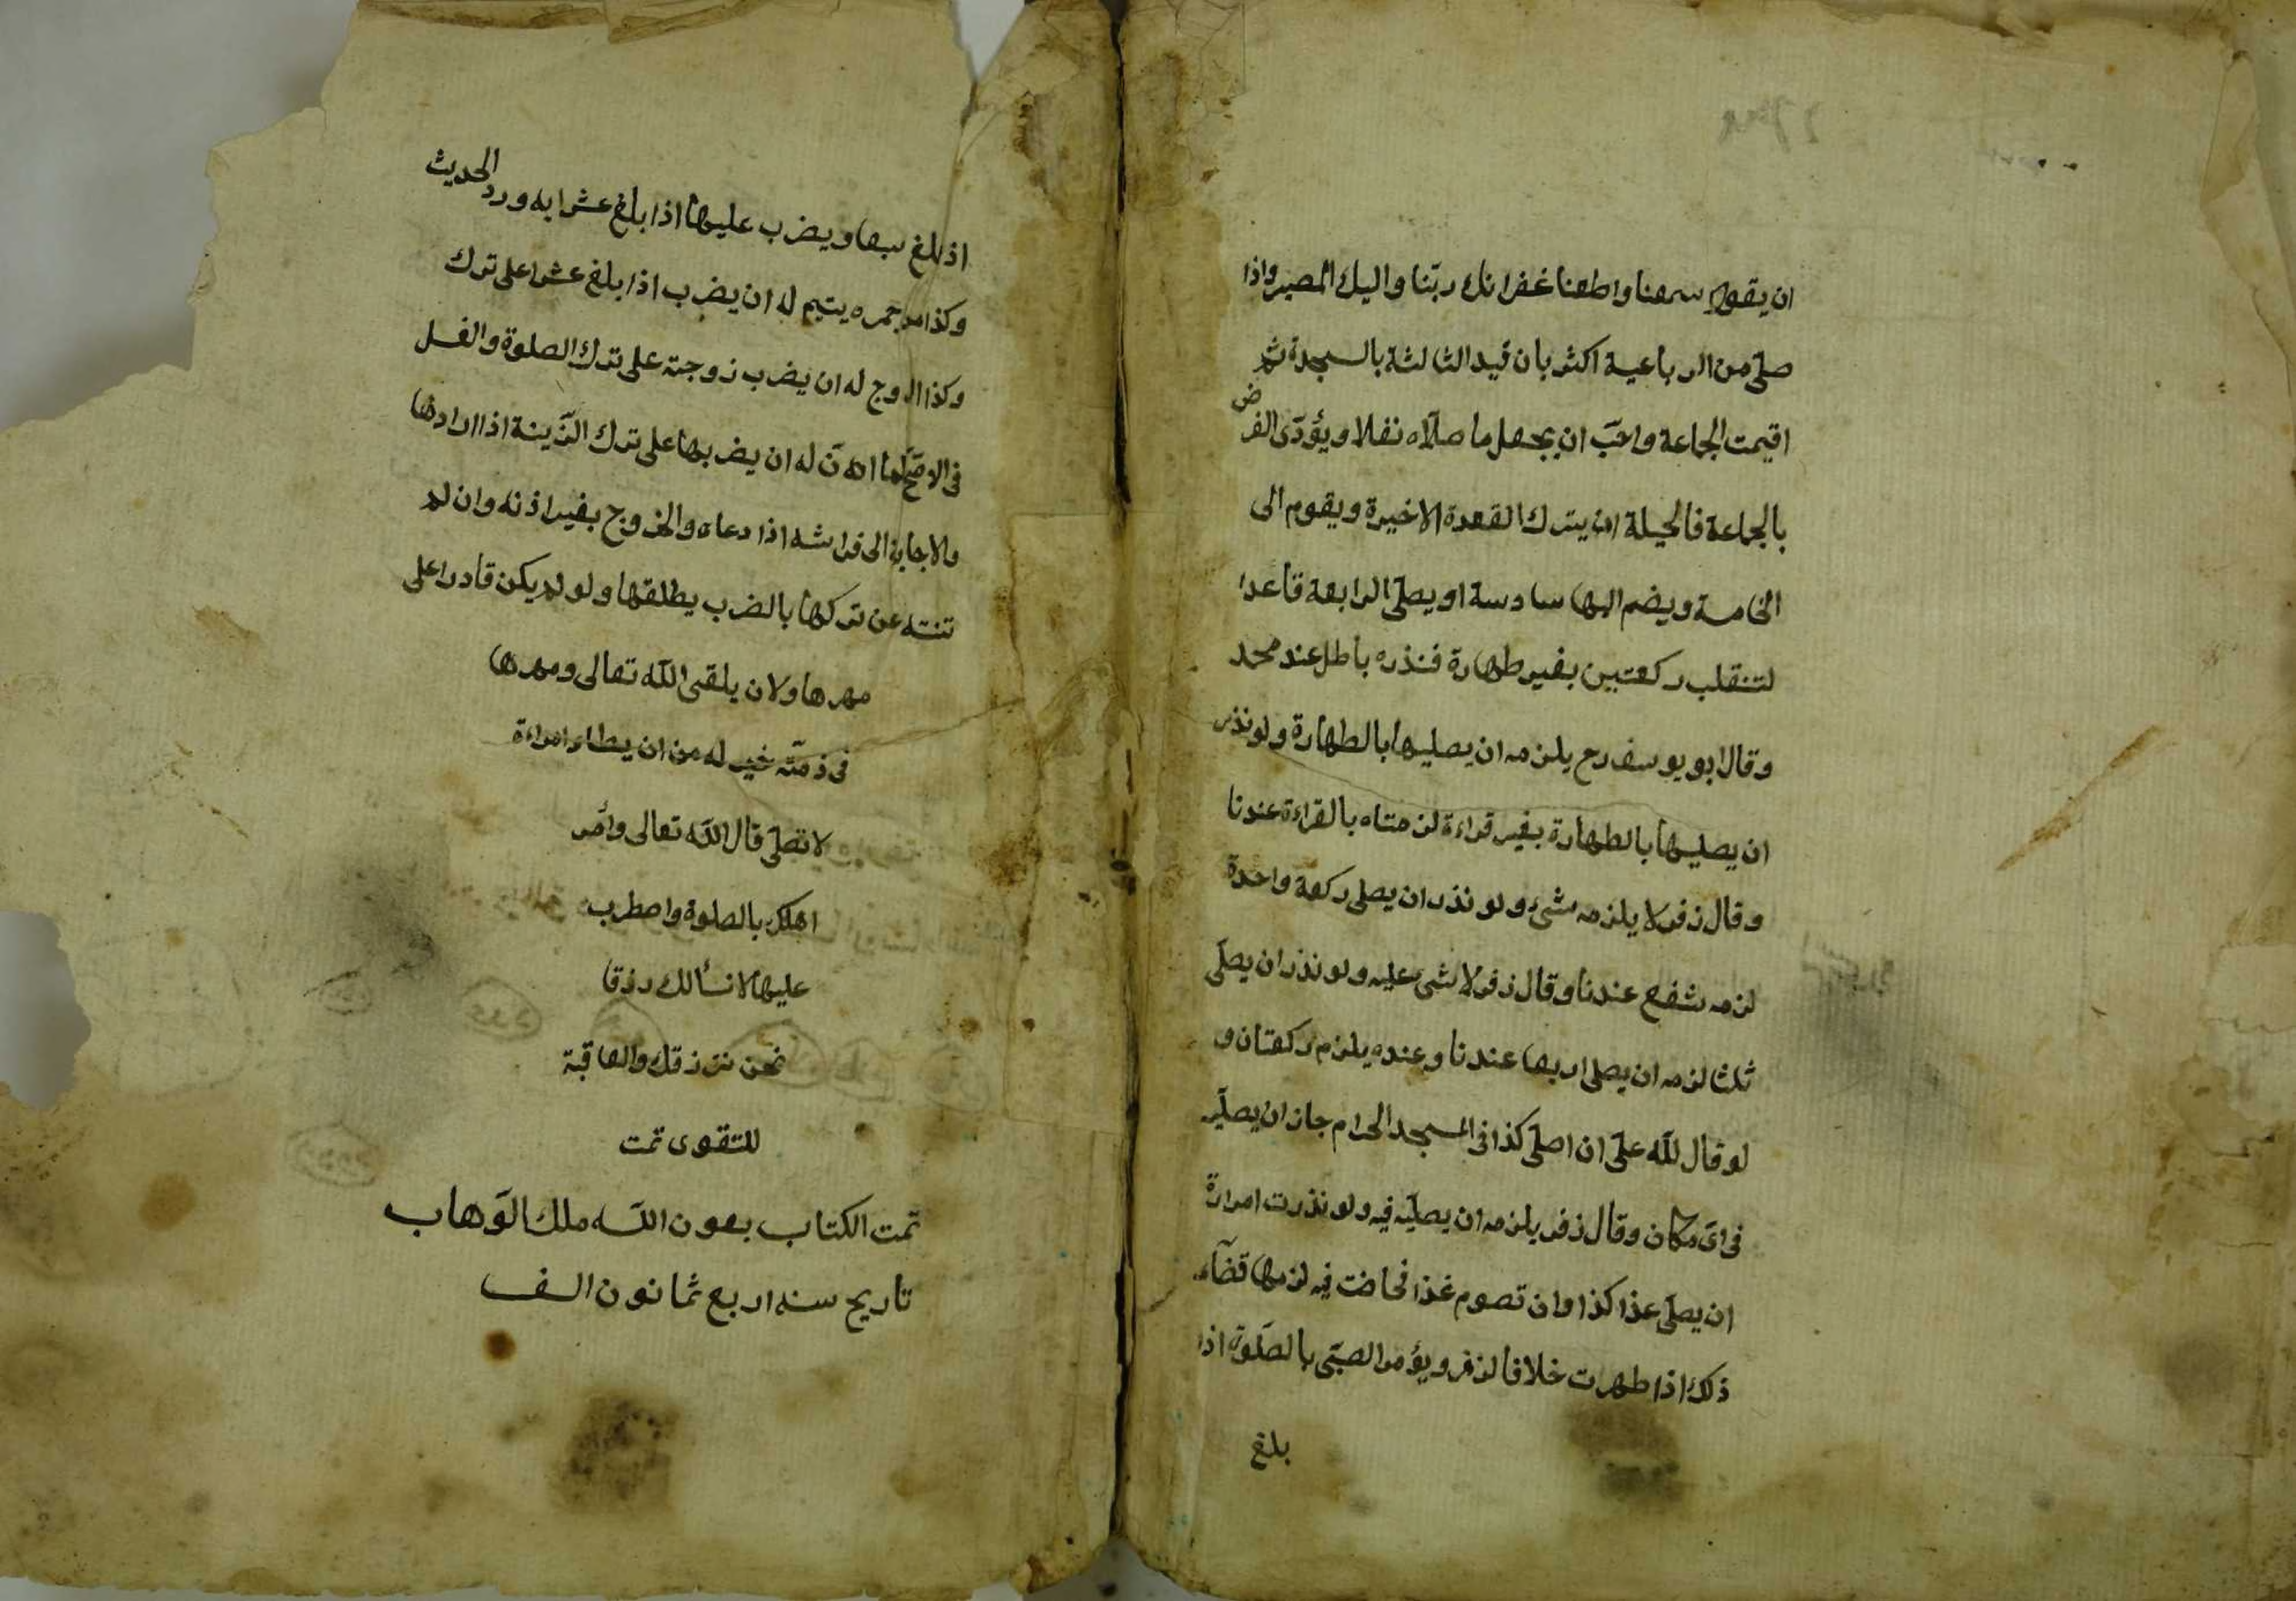 ان يقول سمعنا واطعنا غفرانك ربّنا واليك المصير واذا
صلّى من الرباعية اكثر بان قيد الثالثة بالسجدة ثم
اقيمت الجماعة واحبّ ان يجعل ما صلّاه نفلا ويؤدّى الفرض
بالجماعة فالحيلة ان يترك القعدة الاخيرة ويقوم الى
الخامسة ويضم اليها سادسة او يصلّى الرابعة قاعدا
لتنقلب ركعتين بغير طهارة فنذره باطل عند محمد
وقال ابو يوسف رح يلزمه ان يصليها بالطهارة ولو نذر
ان يصليها بالطهارة بغير قراءة لزمتاه بالقراءة عندنا
وقال زفر لا يلزمه شئ ولو نذر ان يصلى ركعة واحدة
لزمه شفع عندنا وقال زفر لا شئ عليه ولو نذر ان يصلّى
ثلثا لزمه ان يصلى اربعا عندنا وعنده يلزم ركعتان و
لو قال للّه علىّ ان اصلّى كذا فى المسجد الحرام جاز ان يصلّيه
فى اىّ مكان وقال زفر يلزمه ان يصلّيه فيه ولو نذرت امراة
ان يصلّى غذا كذا وان تصوم غذا فحاضت فيه لزمها قضآء
ذلك اذا طهرت خلافا لزفر ويؤمر الصبّى بالصلوة اذا
بلغ
اذا بلغ سبعا ويضرب عليها اذا بلغ عشرا به ورد الحديث
وكذا من حجره يتيم له ان يضرب اذا بلغ عشرا على ترك
وكذا الزوج له ان يضرب زوجته على ترك الصلوة والغسل
فى الاصّح كما انّ له ان يضربها على ترك الزّينة اذا ارادها
والاجابة الى فراشه اذا دعاه والخروج بغير اذنه وان لم
تنته عن تركها بالضرب يطلقها ولو لم يكن قادرا على
مهرها ولان يلقى اللّه تعالى ومهرها
فى ذمّته خير له من ان يطاء امراءة
لا تصلّى قال اللّه تعالى وأمر
اهلك بالصلوة واصطرب
عليها لا نسألك رزقا
نحن نرزقك والعاقبة
للتقوى تمت
تمت الكتاب بعون اللّه ملك الوّهاب
تاريح سنه اربع ثمانون الف